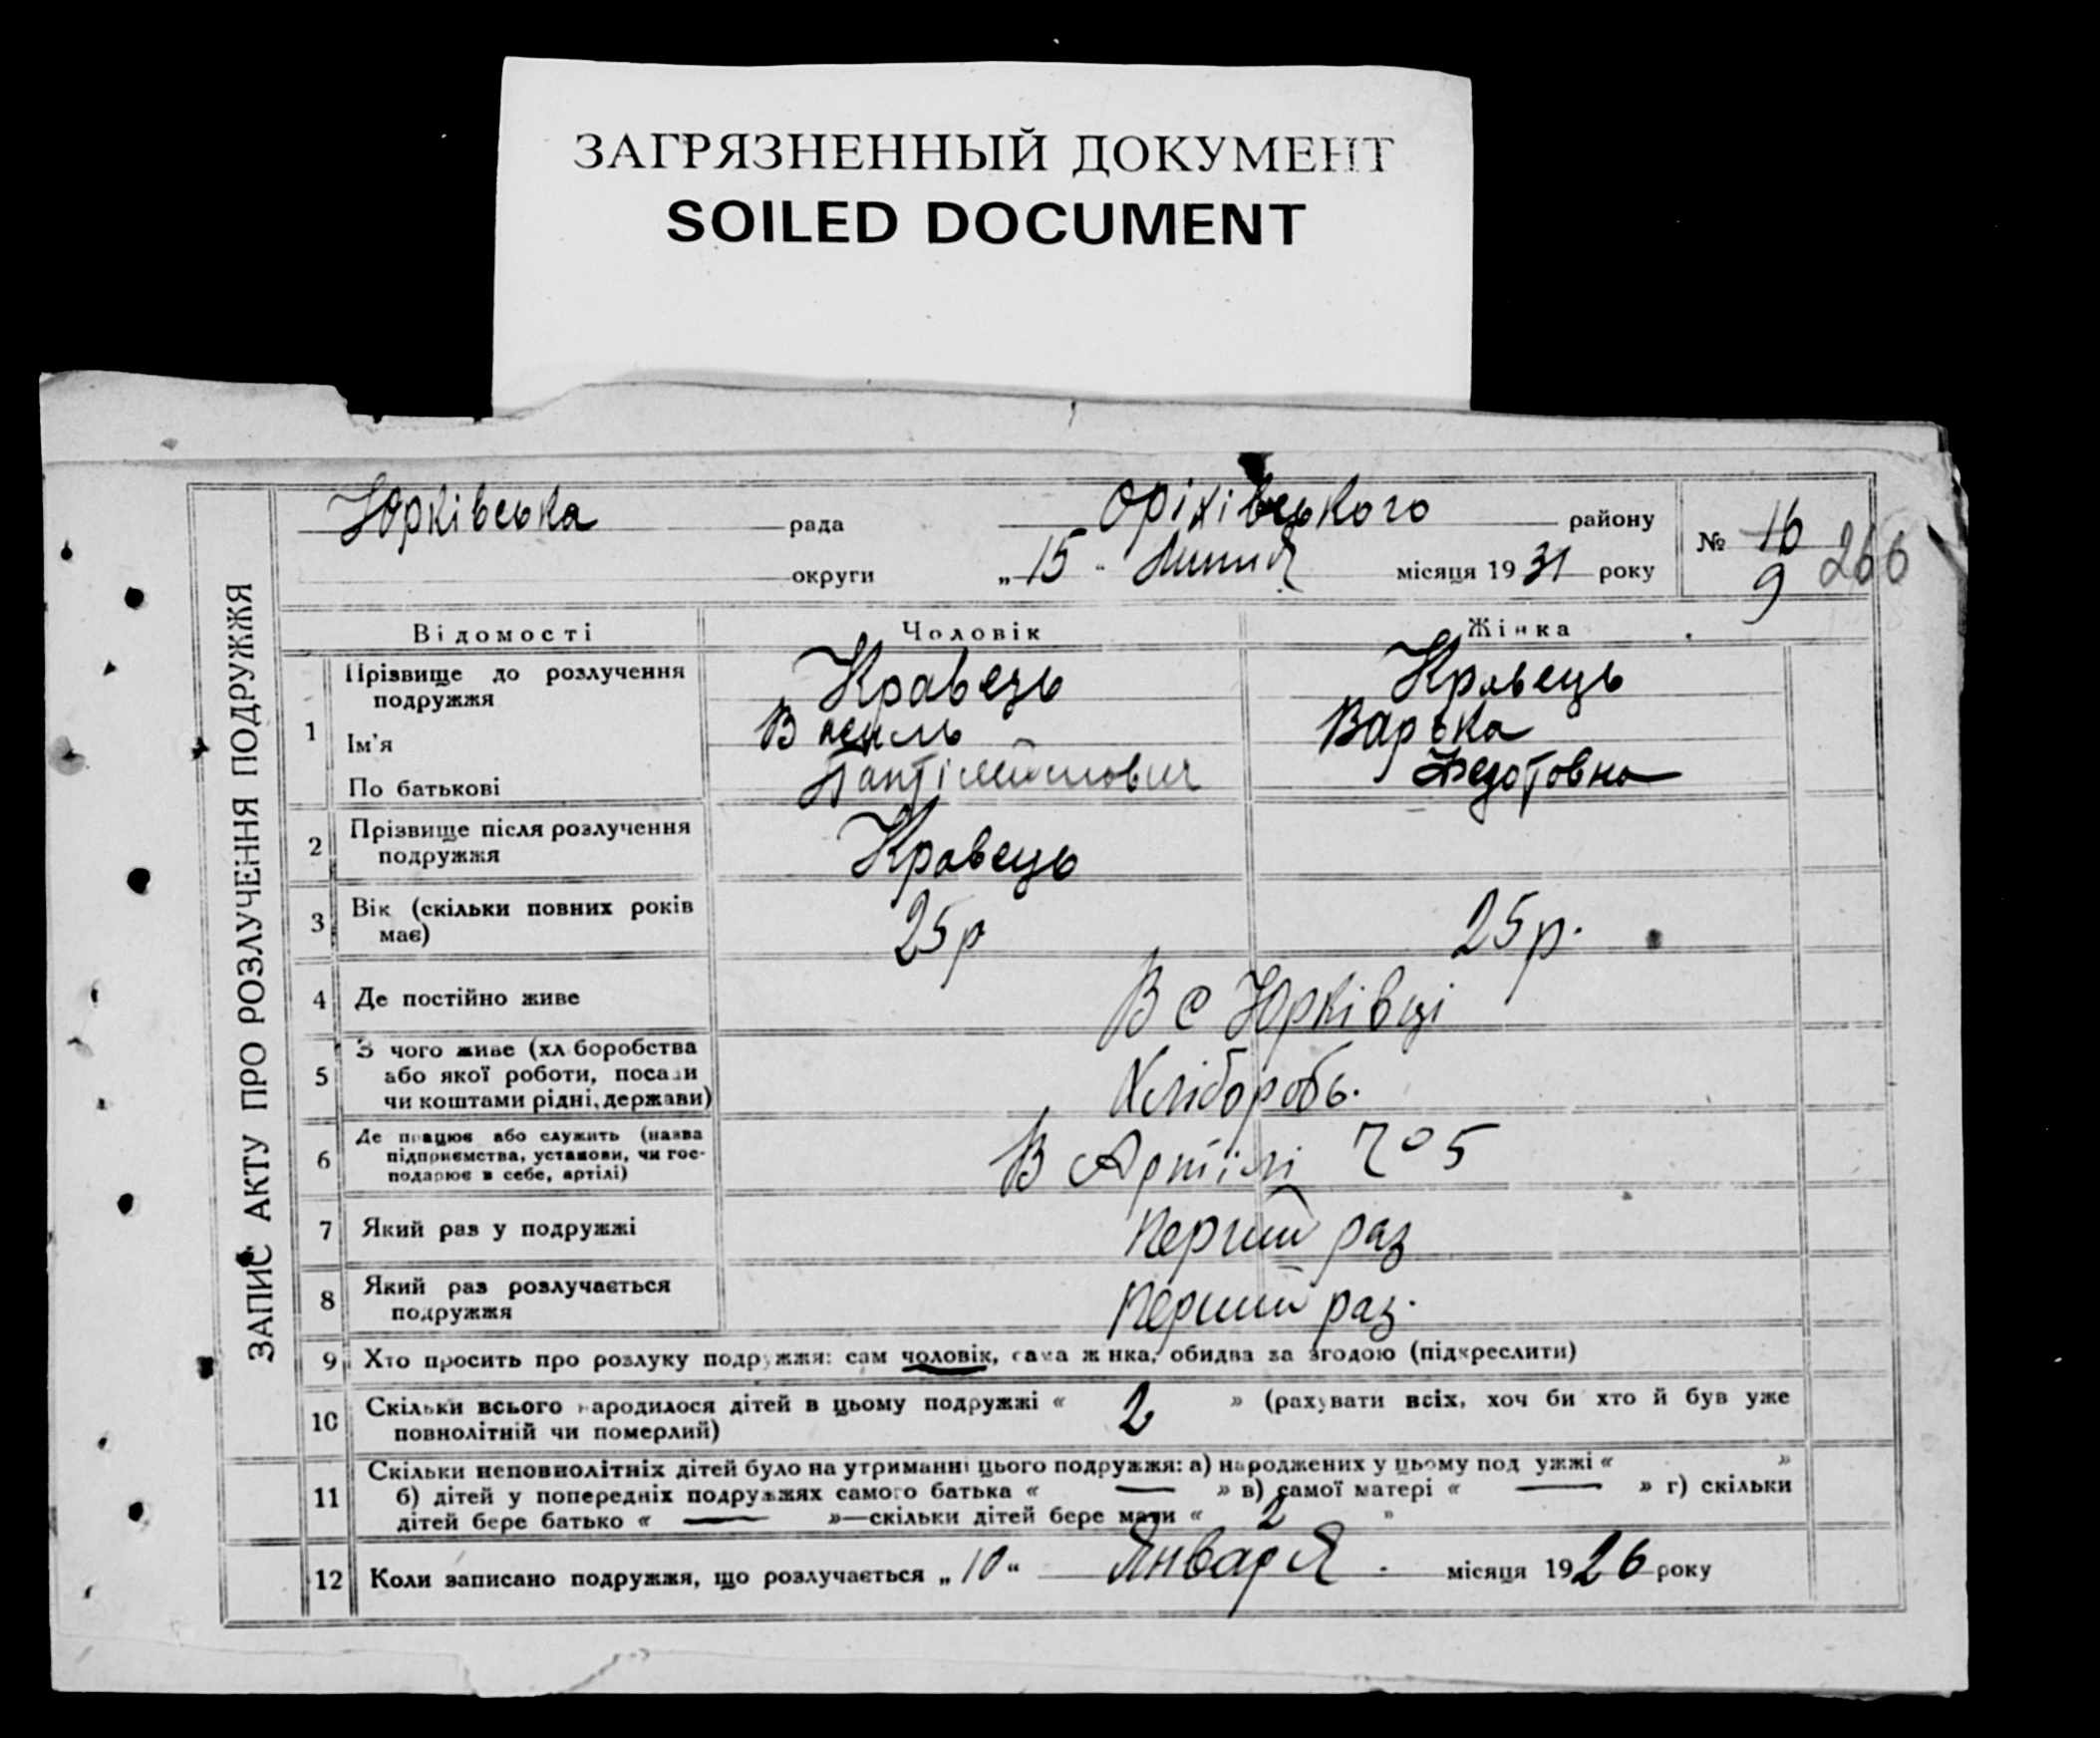 ЗАГРЯЗНЕННЫЙ ДОКУМЕНТ
SOILED DOCUMENT
ЗАПИС АКТУ ПРО РОЗЛУЧЕННЯ ПОДРУЖЖЯ
Юрківська рада Оріхівського району
округи „15" Липня місяця 1931 року
№ 16
9
266
Відомості Чоловік Жінка
1 Прізвище до розлучення подружжя Кравець Кравець
Ім'я Василь Варька
По батькові Федотовна
2 Прізвище після розлучення подружжя Кравець
3 Вік (скільки повних років має) 25 р 25 р.
4 Де постійно живе В с Юрківці
5 З чого живе (хліборобства
або якої роботи, посади
чи коштами рідні, держави) Хлібороб.
6 Де працює або служить (назва
підприємства, установи, чи гос-
подарює в себе, артілі) В Артілі № 5
7 Який раз у подружжі перший раз
8 Який раз розлучається
подружжя перший раз.
9 Хто просить про розлуку подружжя: сам чоловік, сама жінка, обидва за згодою (підкреслити)
10 Скільки всього народилося дітей в цьому подружжі « 2 » (рахувати всіх, хоч би хто й був уже
повнолітній чи померлий)
11 Скільки неповнолітніх дітей було на утриманні цього подружжя: а) народжених у цьому подружжі « »
б) дітей у попередніх подружжях самого батька « — » в) самої матері « — » г) скільки
дітей бере батько « — »—скільки дітей бере мати « 2 »
12 Коли записано подружжя, що розлучається „10" Января. місяця 1926 року